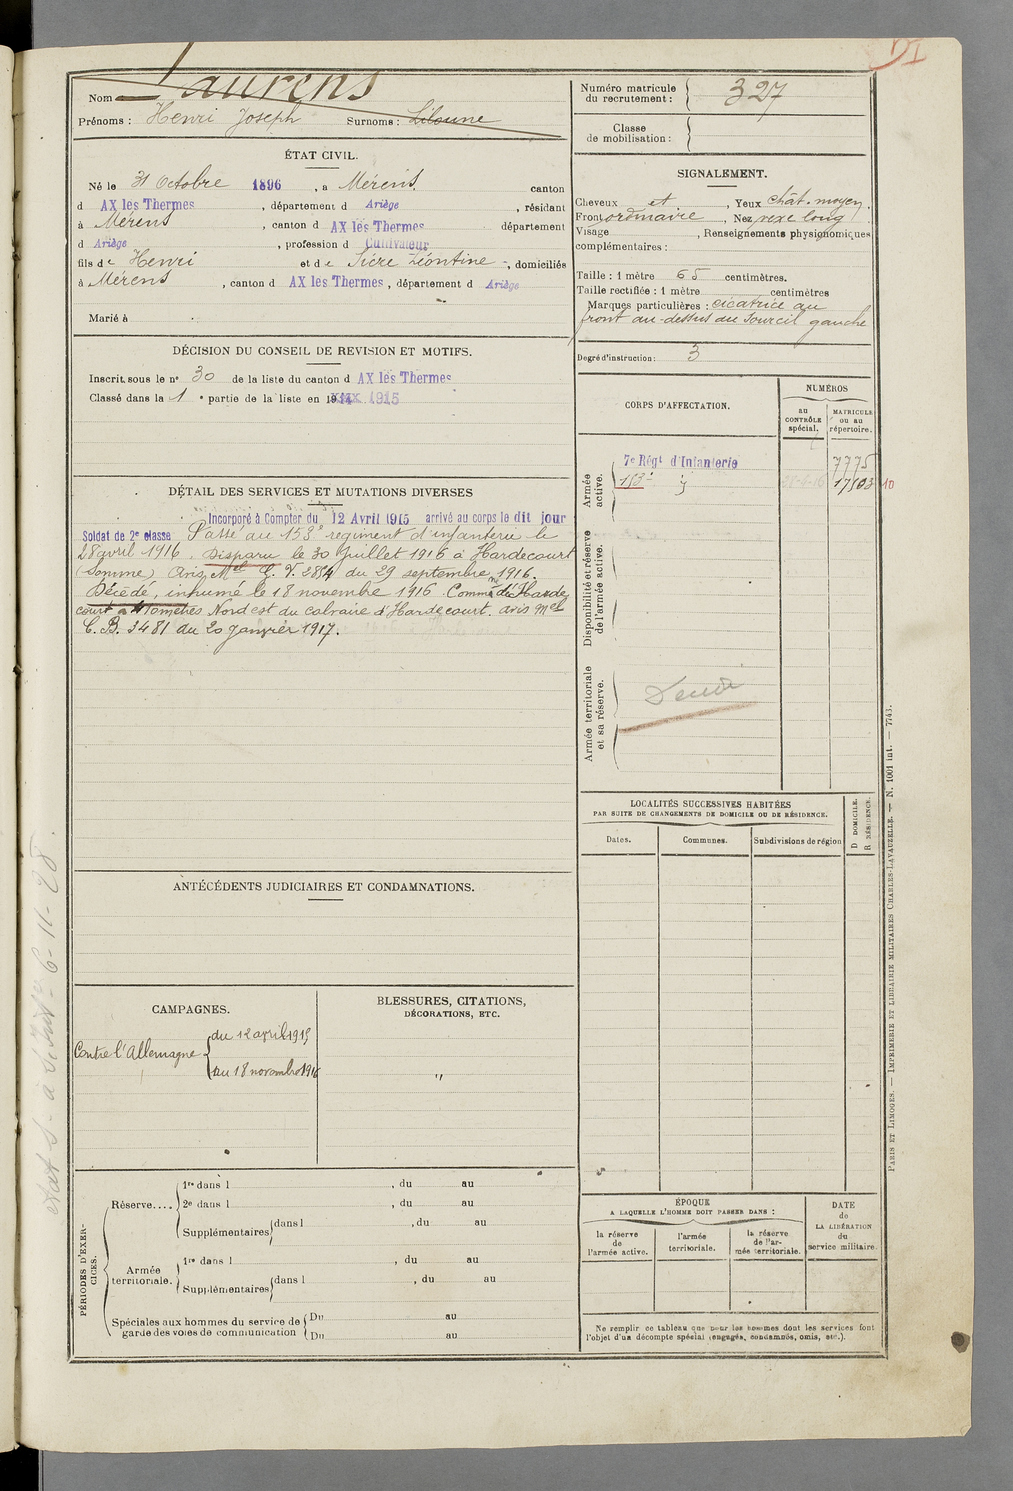 DI
Nom Laurens
Prénoms : Henri Joseph Surnoms :
Numéro matricule du recrutement : 327
Classe de mobilisation :
ÉTAT CIVIL.
Né le 31 Octobre 1896, à Mérens, canton
d AX les Thermes, département d Ariège, résidant
à Mérens, canton d AX les Thermes département
d Ariège, profession d Cultivateur
fils de Henri et de Sicre Léontine, domiciliés
à Mérens, canton d AX les Thermes, département d Ariège
Marié à
DÉCISION DU CONSEIL DE REVISION ET MOTIFS.
Inscrit sous le n° 30 de la liste du canton d AX les Thermes
Classé dans la 1e partie de la liste en 19 1915
DÉTAIL DES SERVICES ET MUTATIONS DIVERSES
Incorporé à Compter du 12 Avril 1915 arrivé au corps le dit jour
Soldat de 2e classe Passé au 153e régiment d'infanterie le
28 avril 1916. Disparu le 30 Juillet 1916 à Hardecourt
(Somme) Avis Mel C. V. 2854 du 29 septembre 1916.
Décédé, inhumé le 18 novembre 1916. Commne d'Harde
court à kilomètres Nord est du calvaire d'Hardecourt. avis Mel
C. B. 3481 du 20 janvier 1917.
ANTÉCÉDENTS JUDICIAIRES ET CONDAMNATIONS.
CAMPAGNES.
Contre l'Allemagne { du 12 avril 1915
au 18 novembre 1916
BLESSURES, CITATIONS,
DÉCORATIONS, ETC.
"
PÉRIODES D'EXERCICES.
Réserve.... 1re dans l , du au
2e dans l , du au
Supplémentaires dans l , du au
Armée territoriale. 1re dans l , du au
Supplémentaires dans l , du au
Spéciales aux hommes du service de garde des voies de communication
Du au
Du au
SIGNALEMENT.
Cheveux et, Yeux chât. moyen,
Front ordinaire, Nez vexe long
Visage , Renseignements physionomiques
complémentaires :
Taille : 1 mètre 65 centimètres.
Taille rectifiée : 1 mètre centimètres
Marques particulières : cicatrice au
front au-dessus du sourcil gauche
Degré d'instruction : 3
CORPS D'AFFECTATION.
NUMÉROS
au CONTRÔLE spécial.
MATRICULE ou au répertoire.
Armée active.
7e Régt d'Infanterie 7775
153e 28-4-16 17503 10
Disponibilité et réserve de l'armée active.
Armée territoriale et sa réserve.
LOCALITÉS SUCCESSIVES HABITÉES
PAR SUITE DE CHANGEMENTS DE DOMICILE OU DE RÉSIDENCE.
Dates. Communes. Subdivisions de région
D DOMICILE.
R RÉSIDENCE.
ÉPOQUE
A LAQUELLE L'HOMME DOIT PASSER DANS :
la réserve de l'armée active.
l'armée territoriale.
la réserve de l'armée territoriale.
DATE de LA LIBÉRATION du service militaire.
Ne remplir ce tableau que pour les hommes dont les services font
l'objet d'un décompte spécial (engagés, condamnés, omis, etc.).
PARIS ET LIMOGES. — IMPRIMERIE ET LIBRAIRIE MILITAIRES CHARLES-LAVAUZELLE. — N. 1001 int. — 7743.